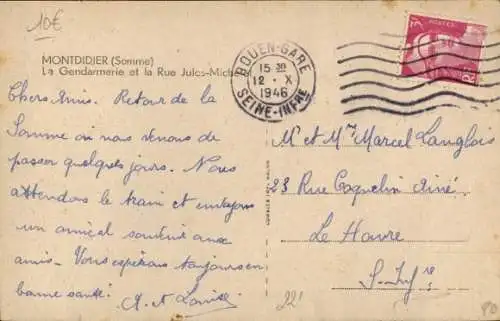 10€
MONTDIDIER (Somme)
La Gendarmerie et la Rue Jules-Michelet
ROUEN-GARE
15 30
12 · X
1946
SEINE-INFRE
POSTES
3F
Chers Amis. Retour de la
Somme où nous venons de
passer quelques jours. Nous
attendons le train et envoyons
un amical souvenir aux
amis – Vous espérons toujours en
bonne santé. A. et Louise
Mr et Mme Marcel Langlois
23 Rue Coquelin Ainé
Le Havre
S. Infre
22!